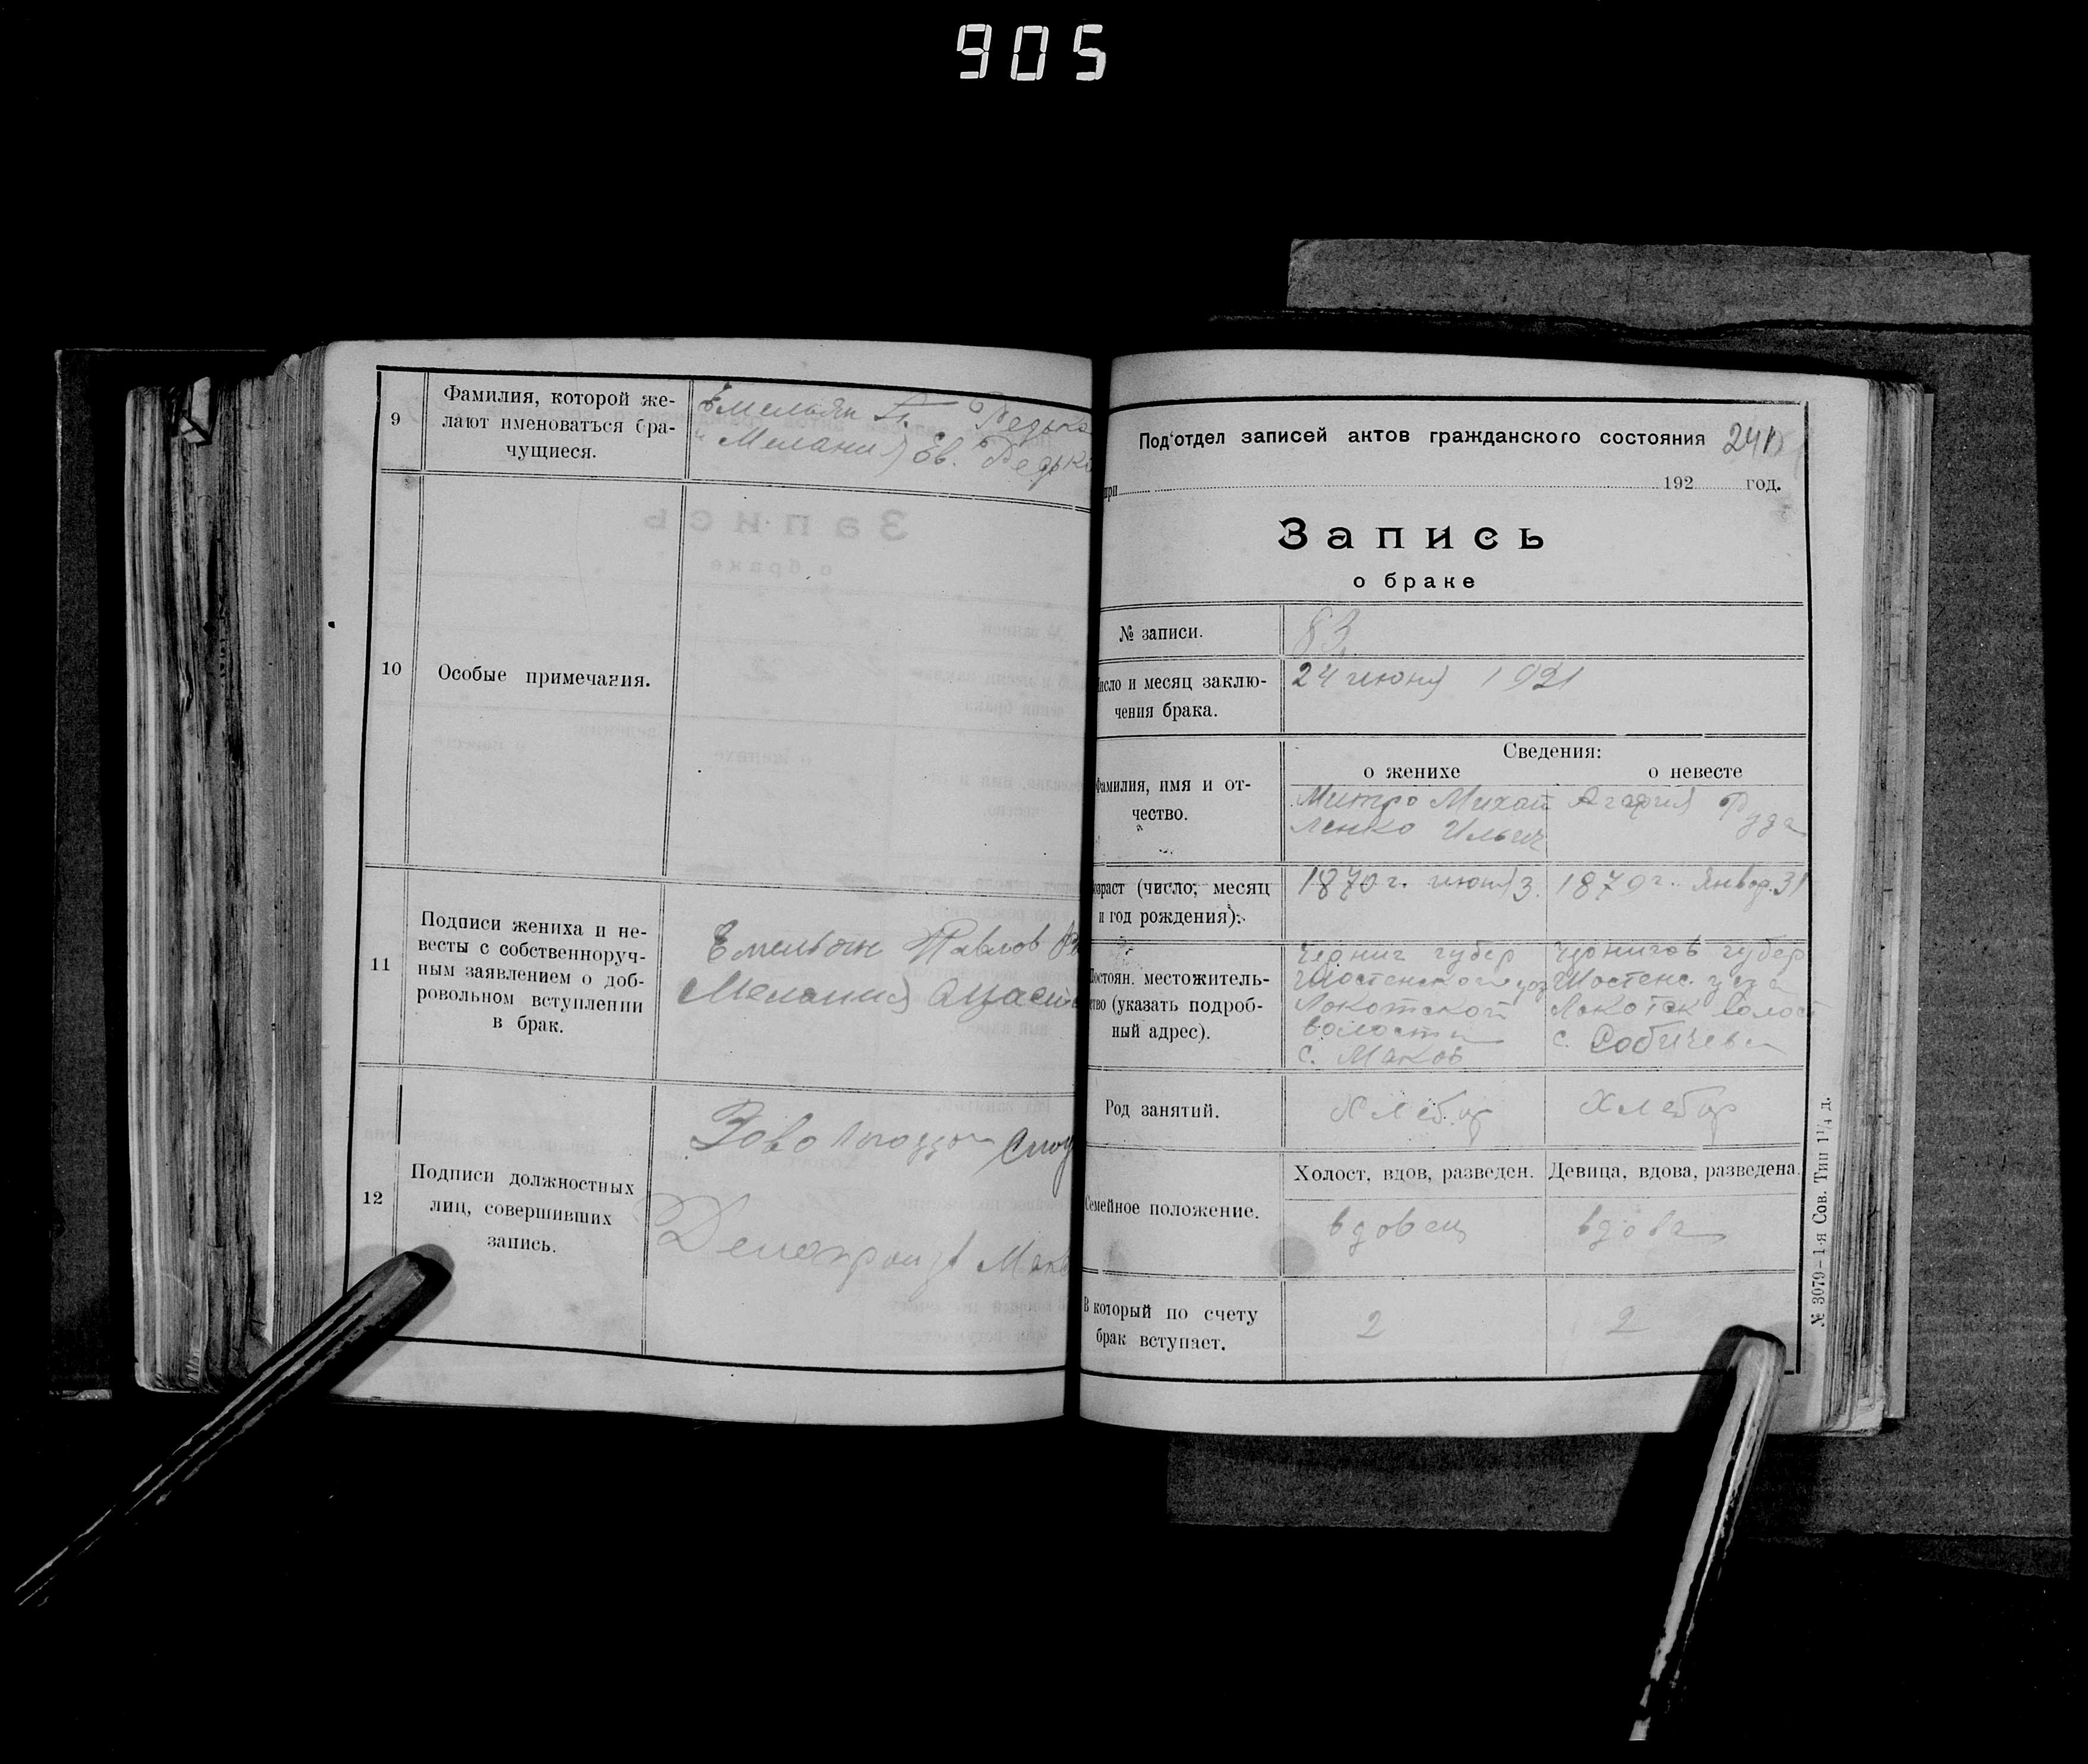 905
9
Фамилия, которой же-
лают именоваться бра-
чущиеся.
Емельян П. Редько
и Мелания Ев. Редько
10
Особые примечания.
11
Подписи жениха и не-
весты с собственноруч-
ным заявлением о доб-
ровольном вступлении
в брак.
Емельян Павлов
Мелания
12
Подписи должностных
лиц, совершивших
запись.
Под'отдел записей актов гражданского состояния
241
при 192 год.
Запись
о браке
№ записи.
83
Число и месяц заклю-
чения брака.
24 июня 1921
Сведения:
о женихе
о невесте
Фамилия, имя и от-
чество.
Митро Михай
ленко Ильич
Агафия Рудя
Возраст (число, месяц
и год рождения).
1870 г. июня 3.
1870 г. Январ. 31
Постоян. местожитель-
ство (указать подроб-
ный адрес).
Черниг губер
Шостенского уез
Локотской
волости
с. Маков
Чернигов губер
Шостенс. уезда
Локотск волост
с. Собичева
Род занятий.
Хлебор
Хлебор
Семейное положение.
Холост, вдов, разведен.
Девица, вдова, разведена.
вдовец
вдова
В который по счету
брак вступает.
2
2
№ 3079–1-я Сов. Тип 1¹/4 д.